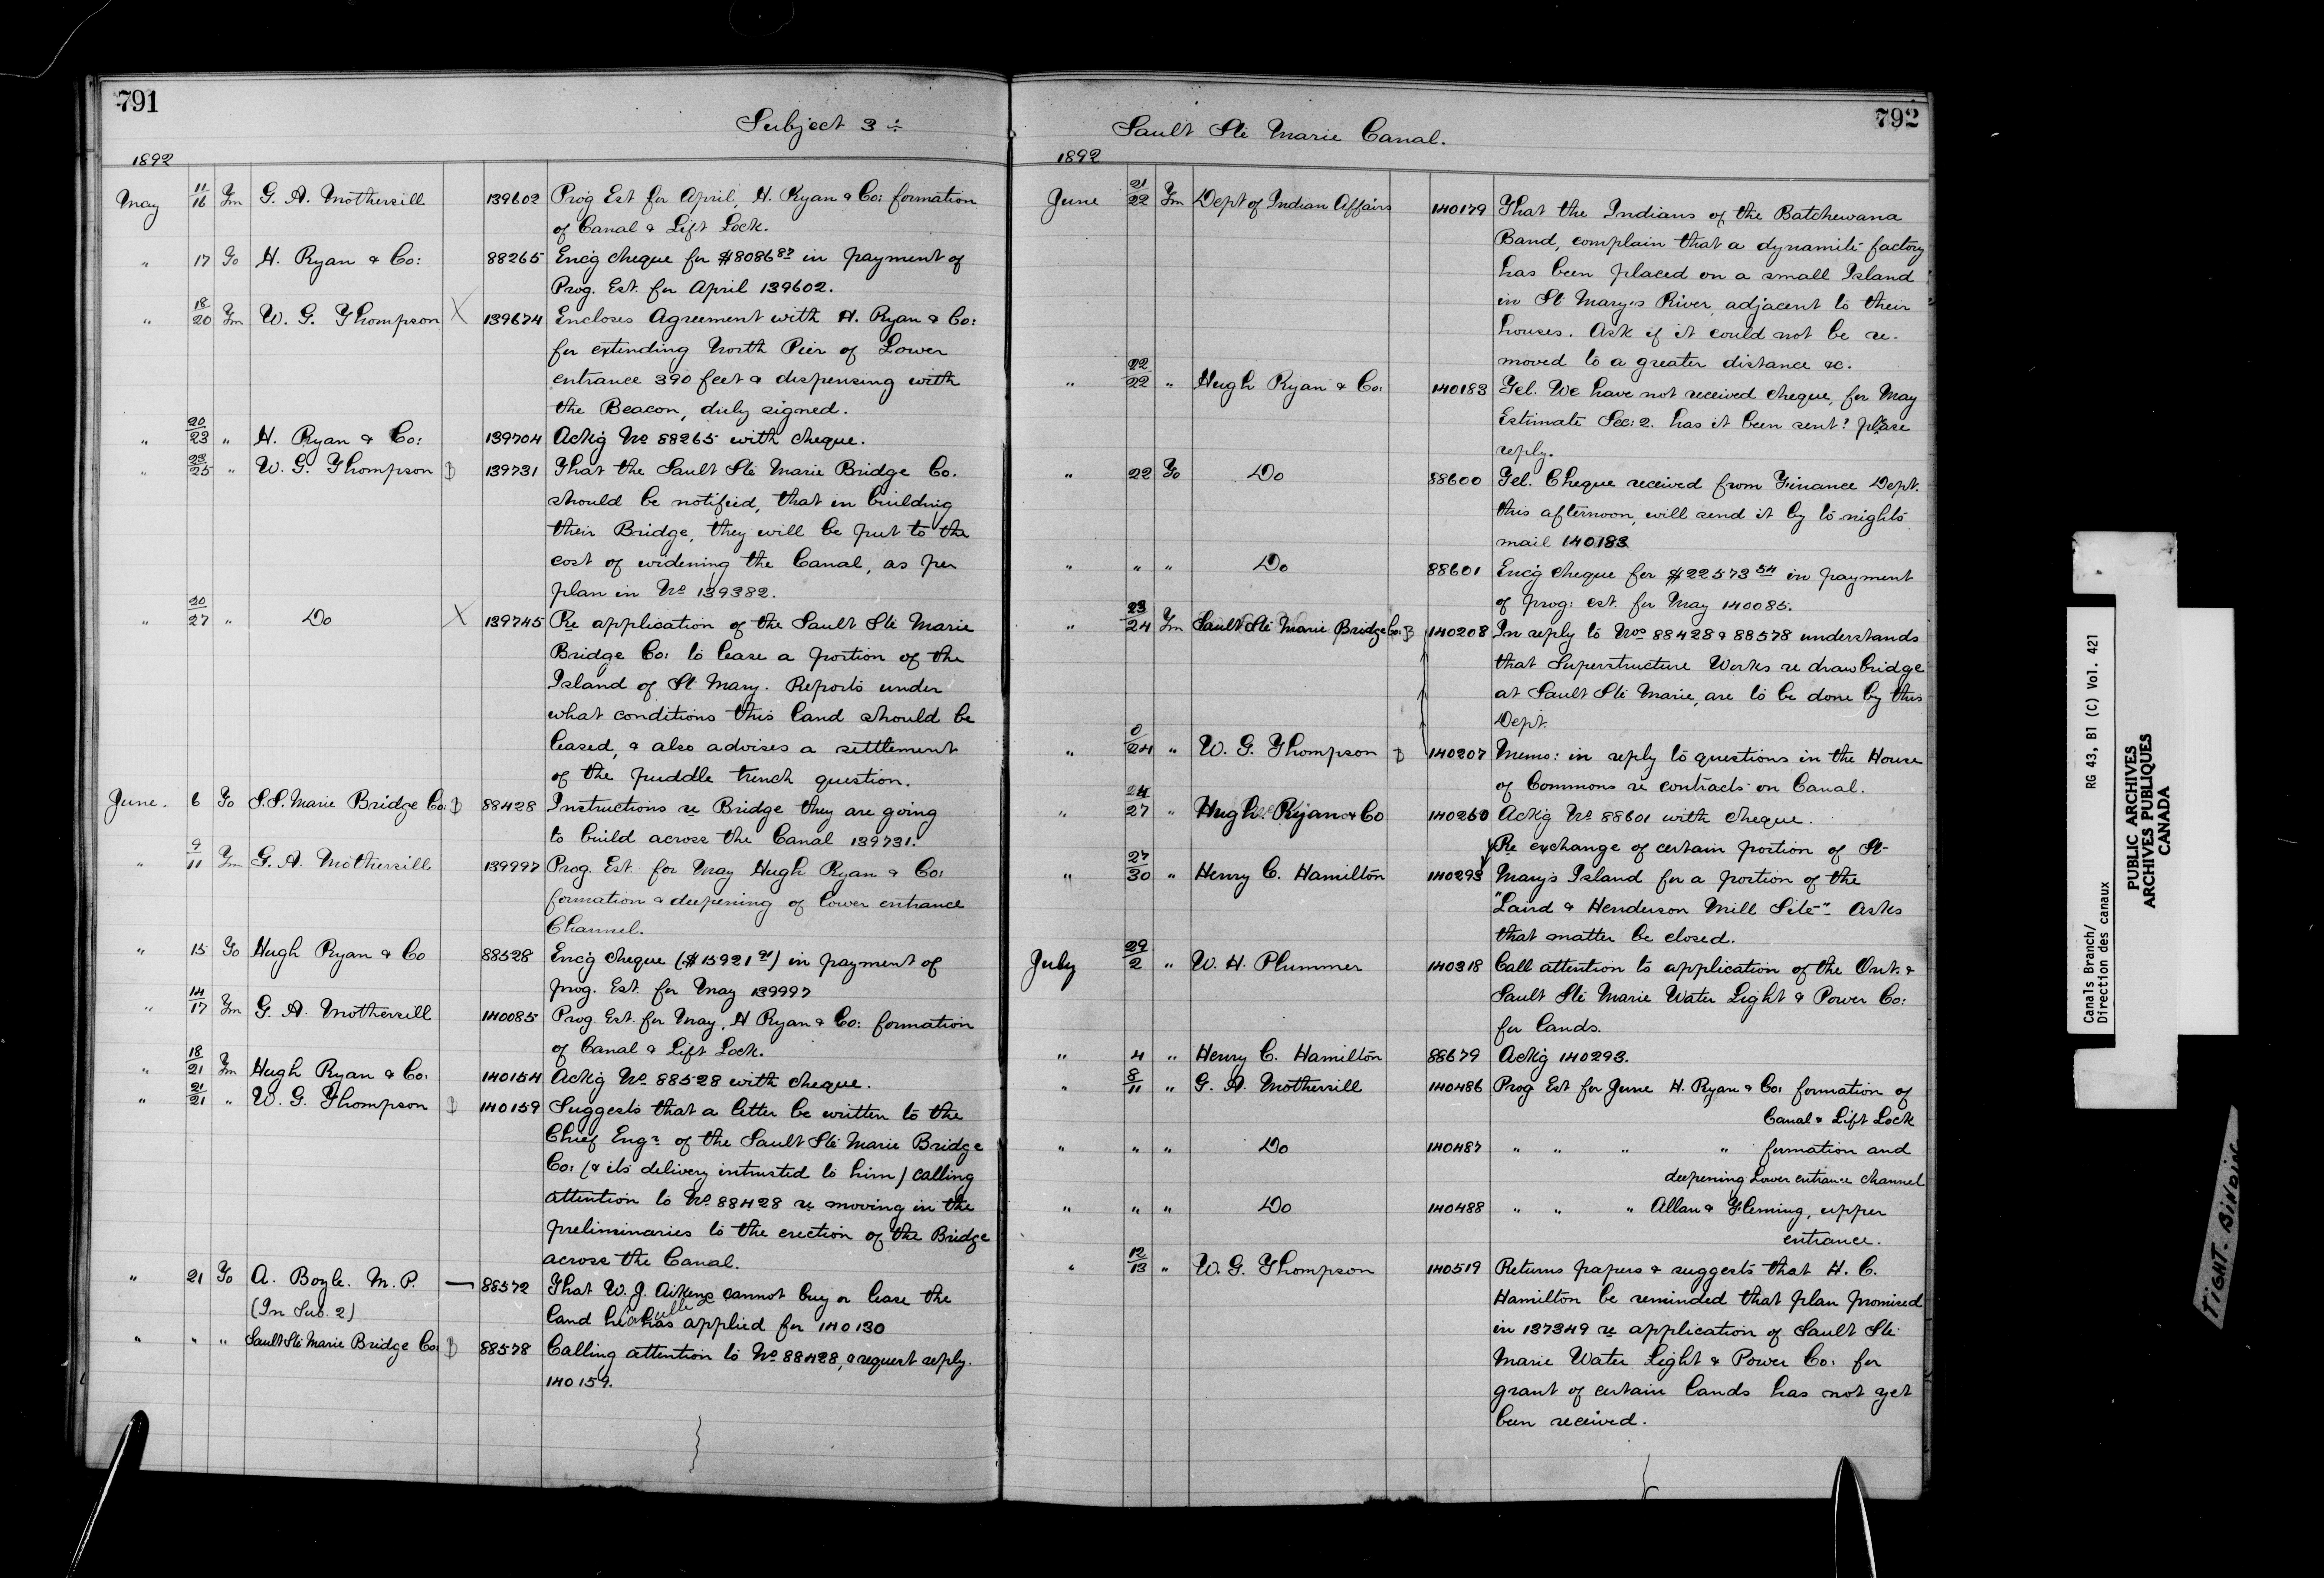 791
Subject 3
1892
May 11/16 Fm G. A. Mothersill 139602 Prog Est for April, H. Ryan & Co: formation
of Canal & Lift Lock.
" 17 To H. Ryan & Co: 88265 Enc'g cheque for $8086.87 in payment of
Prog. Est. for April 139602.
" 18/20 Fm W. G. Thompson X 139674 Encloses Agreement with H. Ryan & Co:
for extending North Pier of Lower
entrance 390 feet & dispensing with
the Beacon, duly signed.
" 20/23 " H. Ryan & Co: 139704 Ack'g No 88265 with cheque.
" 23/25 " W. G. Thompson B 139731 That the Sault Ste Marie Bridge Co.
should be notified, that in building
their Bridge, they will be put to the
cost of widening the Canal, as per
plan in No 139382.
" 20/27 " Do X 139745 Re application of the Sault Ste Marie
Bridge Co: to lease a portion of the
Island of St Mary. Reports under
what conditions this land should be
leased, & also advises a settlement
of the puddle trench question.
June. 6 To S.S. Marie Bridge Co: B 88428 Instructions re Bridge they are going
to build across the Canal 139731.
" 9/11 Fm G. A. Mothersill 139997 Prog. Est. for May Hugh Ryan & Co:
formation & deepening of lower entrance
Channel.
" 15 To Hugh Ryan & Co 88528 Enc'g cheque ($15921 91) in payment of
prog. Est. for May 139997
" 14/17 Fm G. A. Mothersill 140085 Prog. Est. for May, H Ryan & Co: formation
of Canal & Lift Lock.
" 18/21 Fm Hugh Ryan & Co: 140154 Ack'g No 88528 with cheque.
" 21/21 " W. G. Thompson B 140159 Suggests that a letter be written to the
Chief Engr of the Sault Ste Marie Bridge
Co: (& its delivery intrusted to him) calling
attention to No 88428 re moving in the
preliminaries to the erection of the Bridge
across the Canal.
" 21 To A. Boyle. M. P. — 88572 That W. J. Aikens cannot buy or lease the
(In Sub. 2) land he has applied for 140130
" " " Sault Ste Marie Bridge Co: B 88578 Calling attention to No 88428, & request reply.
140159.
792
Sault Ste Marie Canal.
1892
June 21/22 Fm Dept of Indian Affairs 140179 That the Indians of the Batchewana
Band, complain that a dynamite factory
has been placed on a small Island
in St Mary's River, adjacent to their
houses. Ask if it could not be re-
moved to a greater distance &c.
" 22/22 " Hugh Ryan & Co: 140183 Tel. We have not received cheque, for May
Estimate Sec: 2. has it been sent? please
reply.
" 22 To Do 88600 Tel. Cheque received from Finance Dept.
this afternoon, will send it by to-night's
mail 140183
" " " Do 88601 Enc'g cheque for $22573 54 in payment
of prog: est. for May 140085.
" 23/24 Fm Sault Ste Marie Bridge Co: B 140208 In reply to Nos 88428 & 88578 understands
that Superstructure Works re drawbridge
at Sault Ste Marie, are to be done by this
Dept.
" 0/24 " W. G. Thompson B 140207 Memo: in reply to questions in the House
of Commons re contracts on Canal.
" 24/27 " Hugh Ryan & Co 140260 Ack'g No 88601 with cheque.
Re exchange of certain portion of St
" 27/30 " Henry C. Hamilton 140293 Mary's Island for a portion of the
"Laird & Henderson Mill Site". Asks
that matter be closed.
July 29/2 " W. H. Plummer 140318 Call attention to application of the Ont. &
Sault Ste Marie Water Light & Power Co:
for lands.
" 4 " Henry C. Hamilton 88679 Ack'g 140293.
" 8/11 " G. A. Mothersill 140486 Prog Est for June H. Ryan & Co: formation of
Canal & Lift Lock
" " " Do 140487 " " " " formation and
deepening Lower entrance channel
" " " Do 140488 " " " Allan & Fleming, upper
entrance.
" 12/13 " W. G. Thompson 140519 Returns papers & suggests that H. C.
Hamilton be reminded that plan promised
in 137349 re application of Sault Ste
Marie Water Light & Power Co: for
grant of certain lands has not yet
been received.
Canals Branch/ RG 43, B1 (C) Vol. 421
Direction des canaux
PUBLIC ARCHIVES
ARCHIVES PUBLIQUES
CANADA
TIGHT BINDING